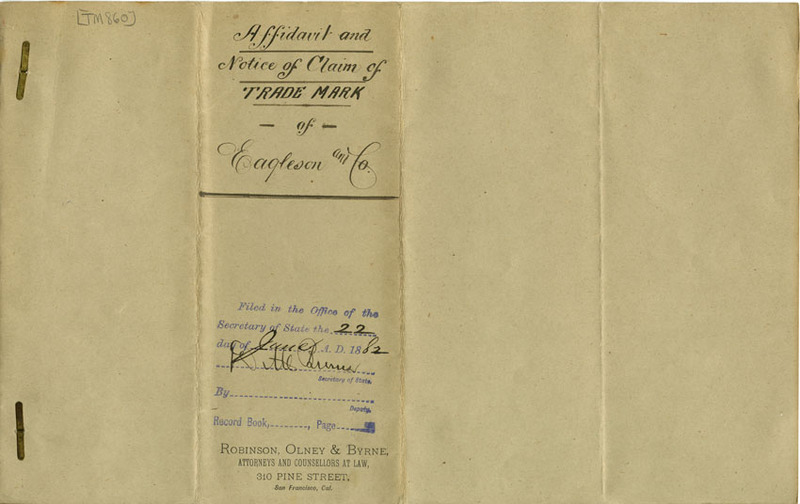 [TM860]
Affidavit and
Notice of Claim of
TRADE MARK
— of —
Eagleson and Co.
Filed in the Office of the
Secretary of State the 22
day of June A. D. 1882
Secretary of State.
By
Deputy.
Record Book, , Page
ROBINSON, OLNEY & BYRNE,
ATTORNEYS AND COUNSELLORS AT LAW,
310 PINE STREET,
San Francisco, Cal.